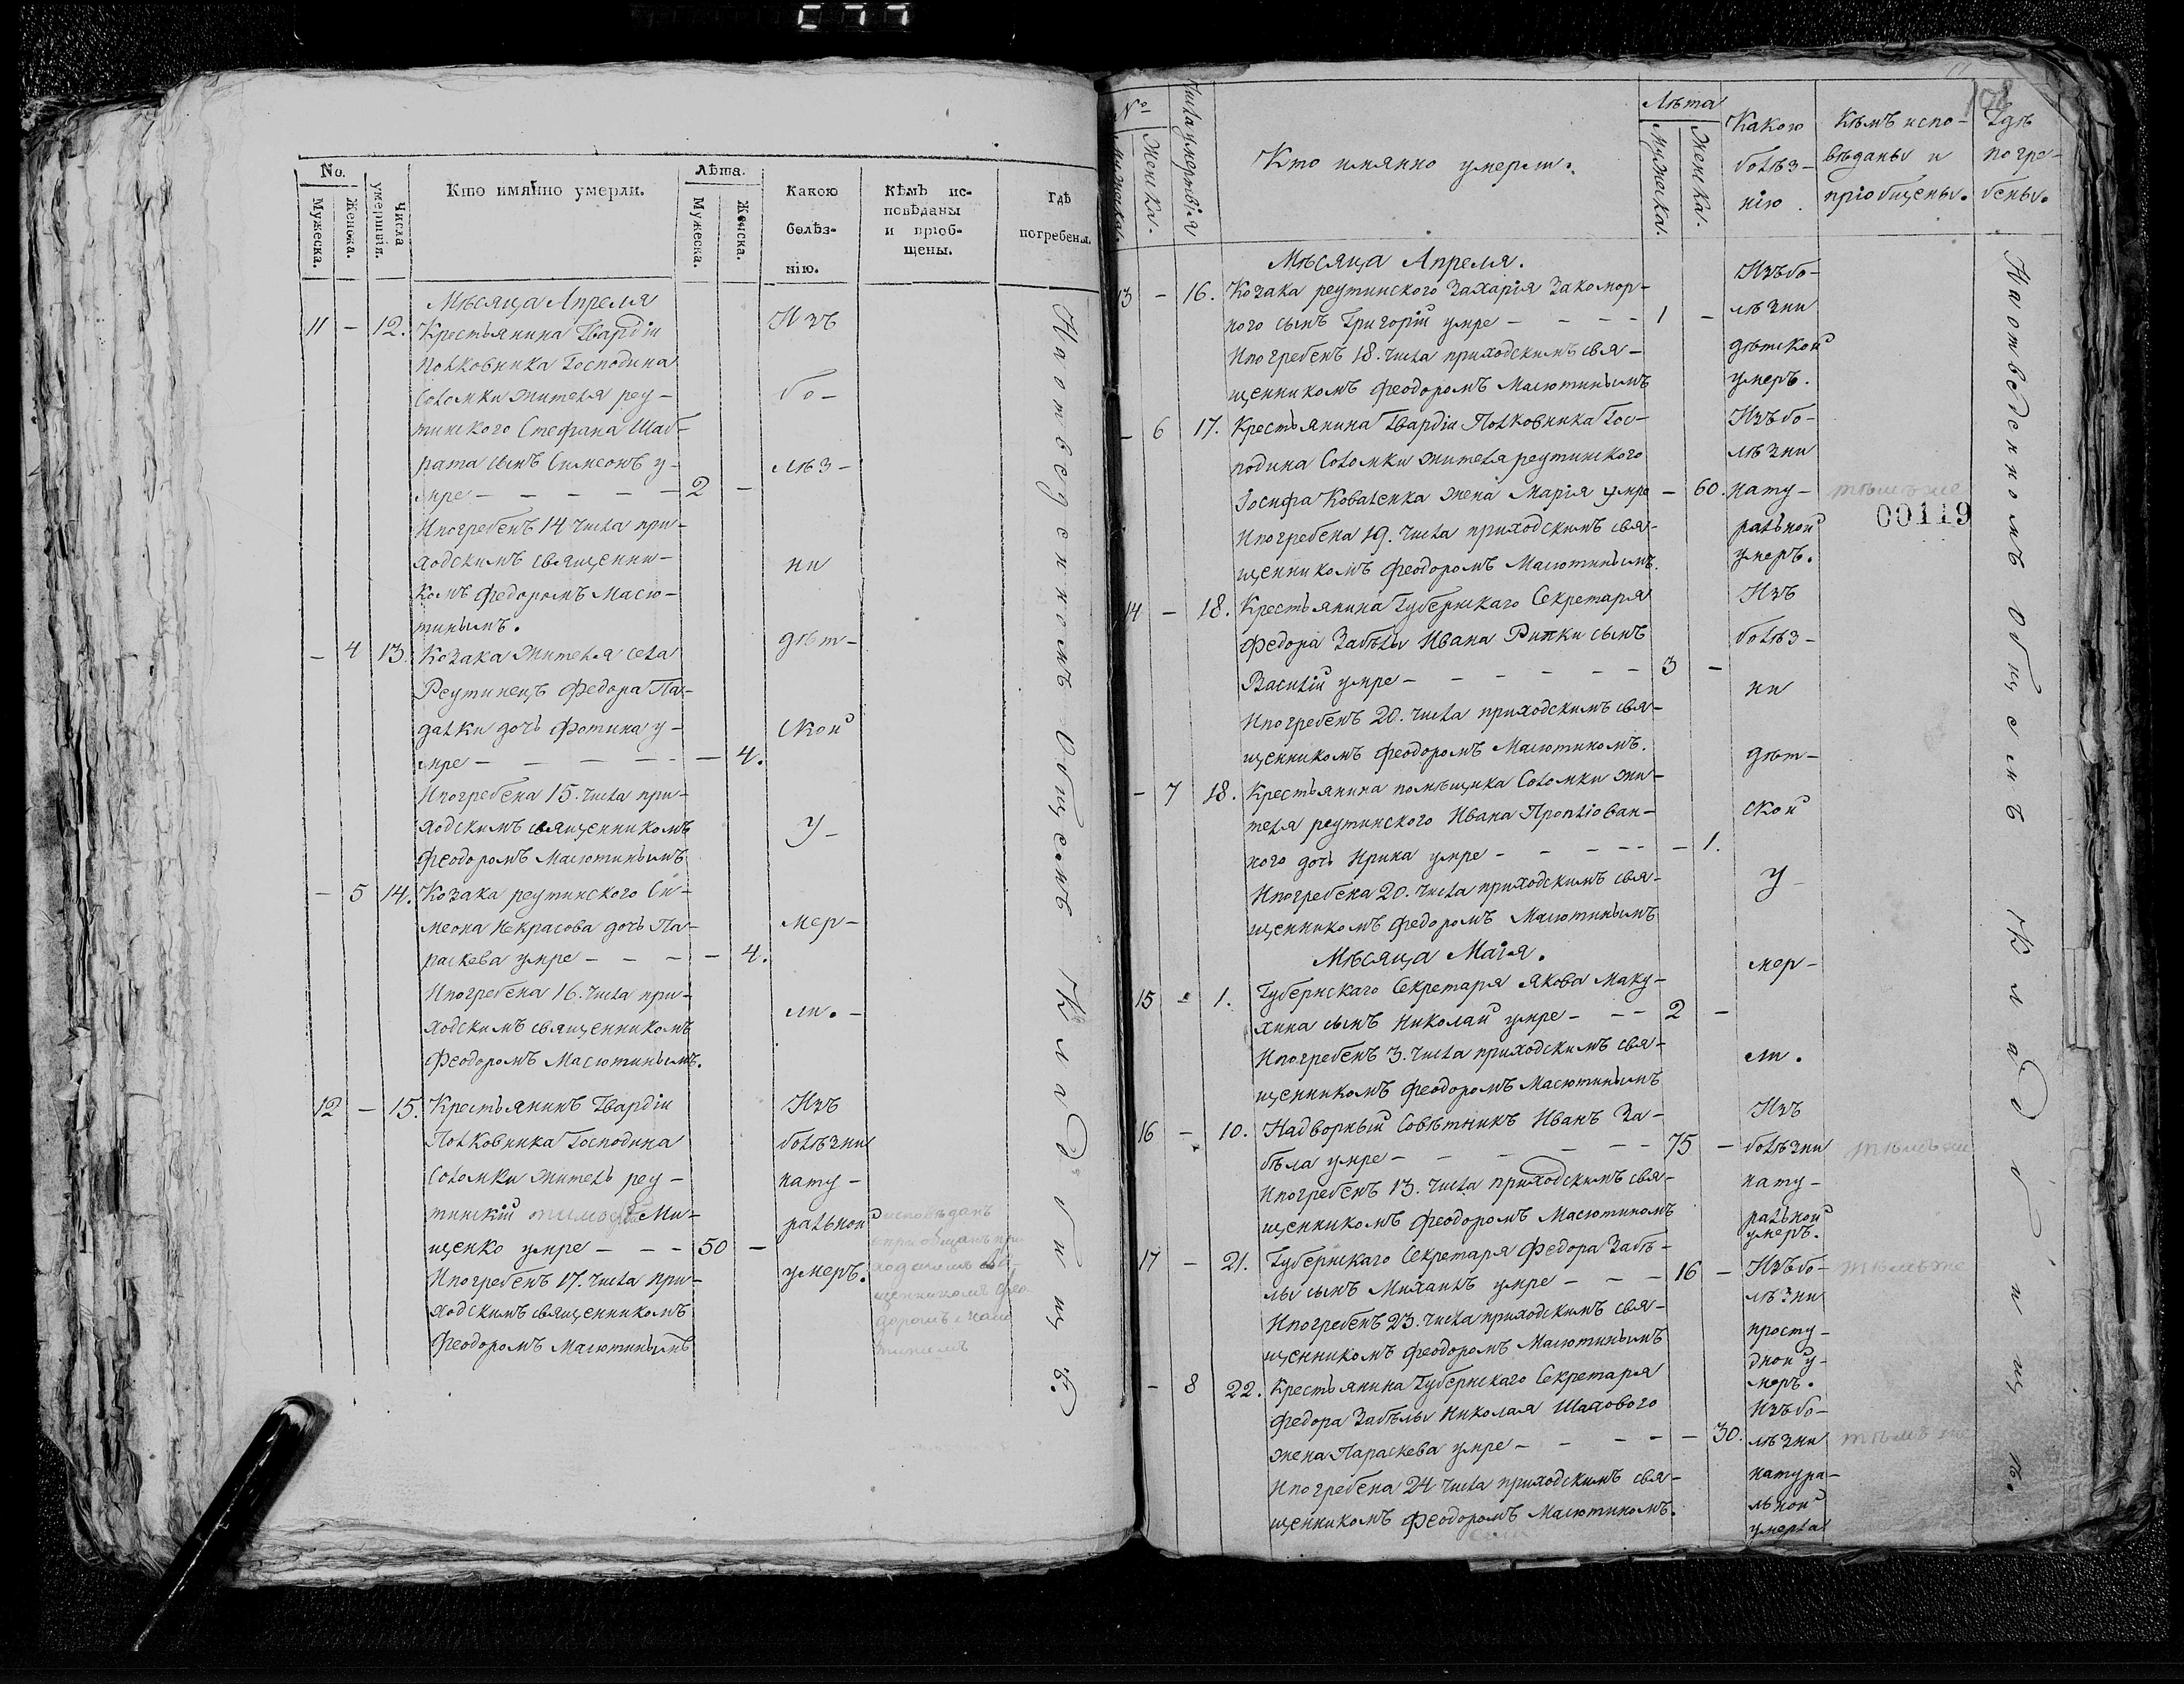 No.
Мужеска.
Женска.
Числа умертвія.
Кто имянно умерли.
Лѣта.
Мужеска.
Женска.
Какою
болѣз-
нію.
Кѣмъ ис-
повѣданы
и пріоб-
щены.
гдѣ
погребены.
Мѣсяца Апреля
11 – 12. Крестьянина Гвардіи
Полковника Господина
Соломки жителя реу-
тинского Стефана Шаб-
рата сынъ Симеонъ у-
мре – – – – – 2 –
Ипогребенъ 14 числа при-
ходскимъ священни-
комъ Федоромъ Масю-
тинымъ.
– 4 13. Козака жителя села
Реутинецъ Федора Па-
далки дочь Фотина у-
мре – – – – – – 4.
Ипогребена 15. числа при-
ходскимъ священникомъ
Феодоромъ Масютинымъ
– 5 14. Козака реутинского Си-
меона Некрасова дочь Па-
раскева умре – – – – 4.
Ипогребена 16. числа при-
ходскимъ священникомъ
Феодоромъ Масютинымъ.
Изъ
бо-
лѣз-
ни
дѣт-
ской
у-
мер-
ли. –
12 – 15. Крестьянинъ Гвардіи
Полковника Господина
Соломки житель реу-
тинскій Тимофей Ми-
щенко умре – – – 50 –
Ипогребенъ 17. числа при-
ходскимъ священникомъ
Феодоромъ Масютинымъ
Изъ
болѣзни
нату-
ральной
умеръ.
исповѣданъ
и приобщенъ при
ходскимъ свя-
щенникомъ Фео
доромъ Масю
тинымъ
На отведенномъ общемъ кладбищѣ.
№
Мужеска.
Женска.
Числа умертвія
Кто имянно умерли.
Лѣта
Мужеска.
Женска.
Какою
болѣз-
нію.
Кѣмъ испо-
вѣданы и
пріобщены.
Гдѣ
погре-
бены.
00119
Мѣсяца Апреля.
13 – 16. Козака реутинского Захарія Закомор-
ного сынъ Григорій умре – – – – 1 –
Ипогребенъ 18. числа приходскимъ свя-
щенникомъ Феодоромъ Масютинымъ
Изъ бо-
лѣзни
дѣтской
умеръ.
– 6 17. Крестьянина Гвардіи Полковника Гос-
подина Соломки жителя реутинского
Іосифа Коваленка жена Марія умре – 60.
Ипогребена 19. числа приходскимъ свя-
щенникомъ Феодоромъ Масютинымъ.
Изъ бо-
лѣзни
нату-
ральной
умеръ.
тѣмъ же
14 – 18. Крестьянина Губернскаго Секретаря
Федора Забѣлы Ивана Рипки сынъ
Василій умре – – – – – – 3 –
Ипогребенъ 20. числа приходскимъ свя-
щенникомъ Феодоромъ Масютиномъ.
– 7 18. Крестьянина помѣщика Соломки жи-
теля реутинского Ивана Проплюван-
ного дочь Ирина умре – – – – – – 1.
Ипогребена 20. числа приходскимъ свя-
щенникомъ Федоромъ Масютинымъ
Мѣсяца Маія.
15 – 1. Губернскаго Секретаря Якова Маку-
хина сынъ Николай умре – – – 2 –
Ипогребенъ 3. числа приходскимъ свя-
щенникомъ Феодоромъ Масютинымъ
Изъ
болѣз-
ни
дѣт-
ской
у-
мер-
ли.
16 – 10. Надворный Совѣтникъ Иванъ За-
бѣла умре – – – – – – 75 –
Ипогребенъ 13. числа приходскимъ свя-
щенникомъ Феодоромъ Масютиномъ
Изъ
болѣзни
нату-
ральной
умеръ.
тѣмъ же
17 – 21. Губернскаго Секретаря Федора Забѣ-
лы сынъ Михаилъ умре – – – 16 –
Ипогребенъ 23. числа приходскимъ свя-
щенникомъ Феодоромъ Масютинымъ
Изъ бо-
лѣзни
просту-
дной у-
меръ.
тѣмъ же
– 8 22. Крестьянина Губернскаго Секретаря
Федора Забѣлы Николая Шахового
жена Параскева умре – – – – – 30.
Ипогребена 24 числа приходскимъ свя-
щенникомъ Феодоромъ Масютиномъ.
Изъ бо-
лѣзни
натура-
льной
умерла
тѣмъ же
На отведенномъ общемъ кладбищѣ.